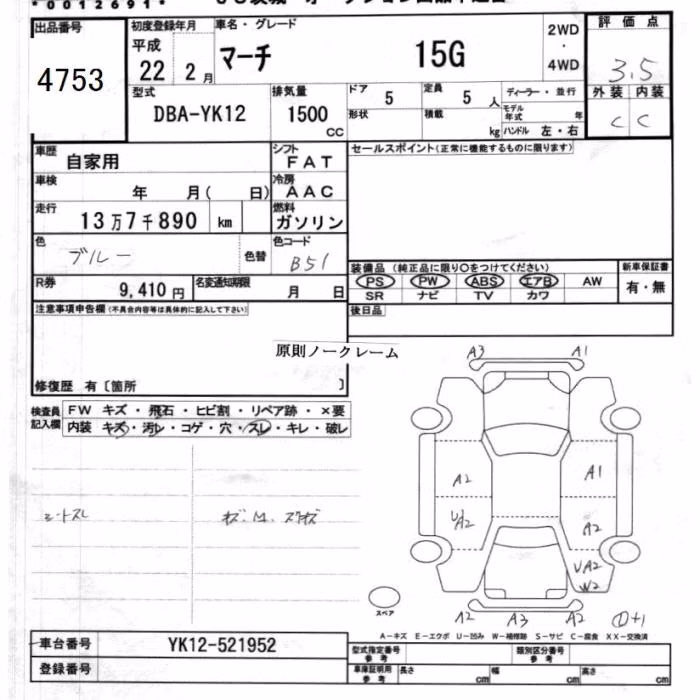 *0012691*
出品番号
4753
初度登録年月
平成
22 2月
車名・グレード
マーチ 15G
2WD
・
4WD
評価点
3.5
外装 内装
C C
型式
DBA-YK12
排気量
1500
CC
ドア
5
定員
5人
形状
積載
kg
ディーラー・並行
モデル年式 年
ハンドル 左・右
車歴
自家用
シフト
FAT
車検
年 月( 日)
冷房
AAC
走行
13万7千890 km
燃料
ガソリン
色
ブルー
色替
色コード
B51
R券
9,410円
名変通知期限
月 日
セールスポイント(正常に機能するものに限ります)
装備品 (純正品に限り○をつけてください)
PS PW ABS エアB AW
SR ナビ TV カワ
新車保証書
有・無
後日品
注意事項申告欄(不具合内容等は具体的に記入して下さい)
修復歴 有〔箇所 〕
原則ノークレーム
検査員記入欄
FW キズ・飛石・ヒビ割・リペア跡・×要
内装 キズ・汚レ・コゲ・穴・スレ・キレ・破レ
シートスレ
A3 A1
A2 A1
U/A2 A2
UA2
W2
A2 A3 A2
スペア
A-キズ E-エクボ U-凹み W-補修跡 S-サビ C-腐食 XX-交換済
車台番号
YK12-521952
登録番号
型式指定番号
参考
類別区分番号
参考
車庫証明用
参考
長さ cm 幅 cm 高さ cm